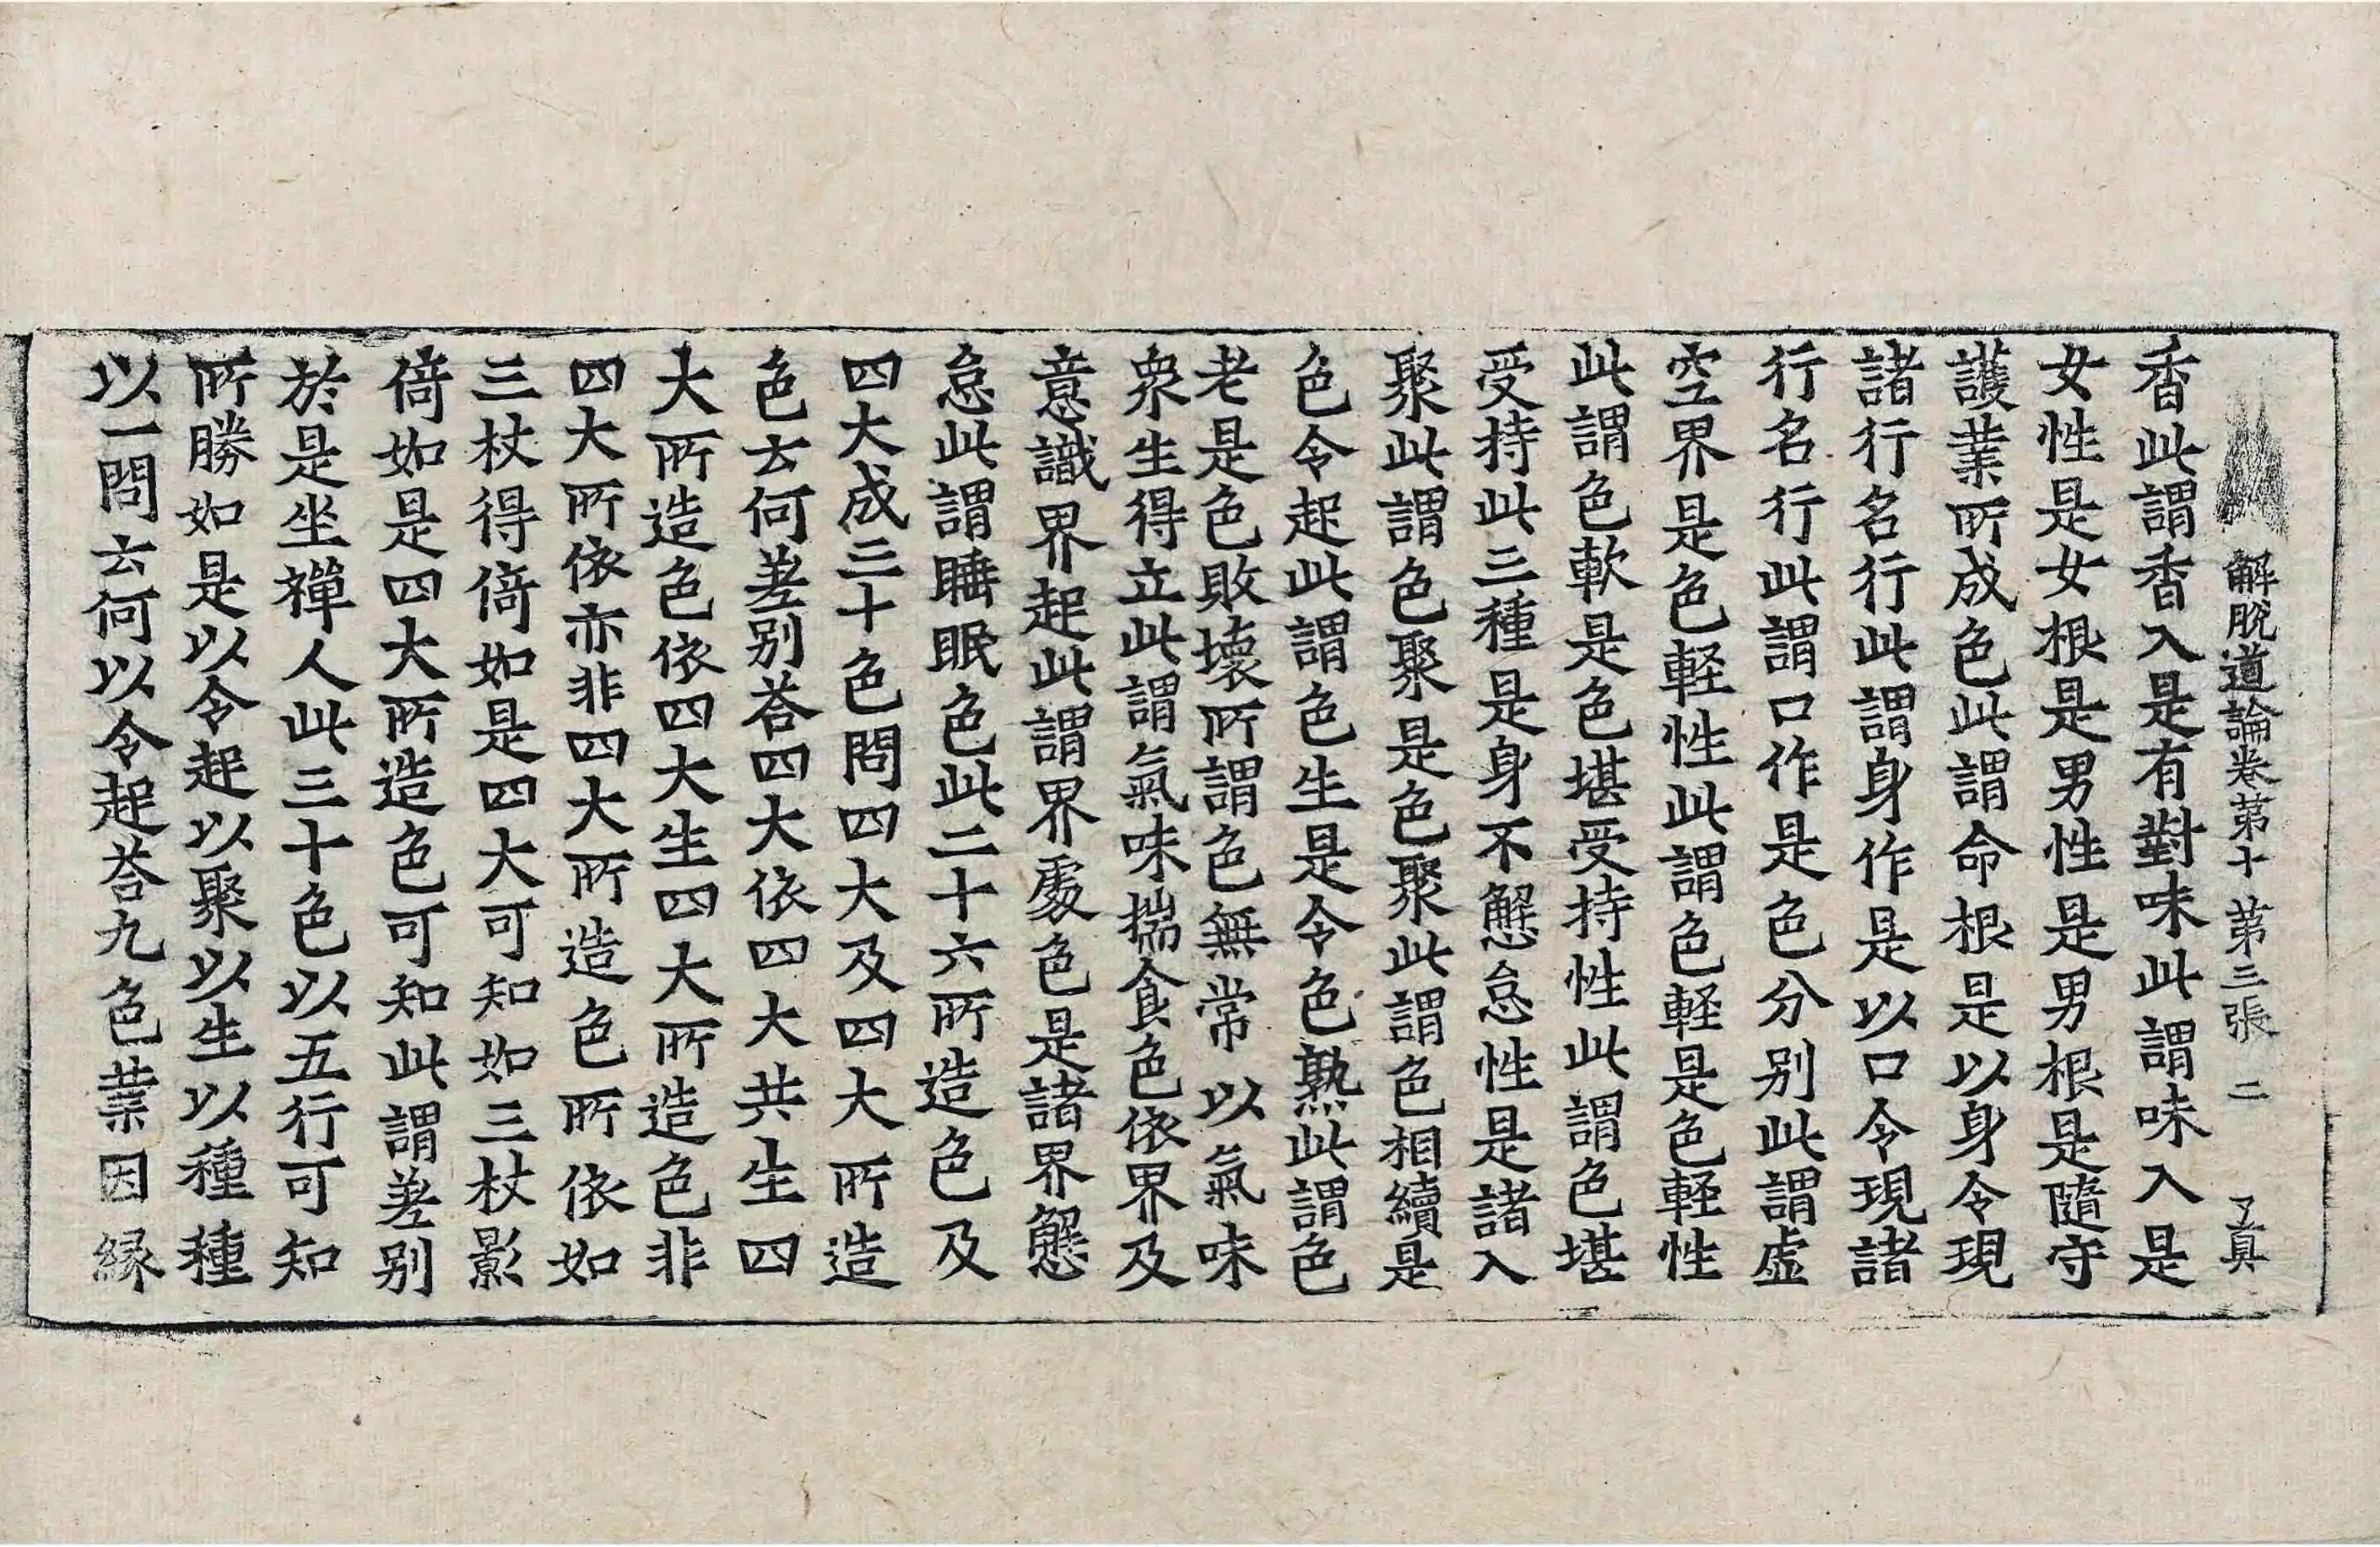 解脱道論卷第十 第三張 二
香此謂香入是有對味此謂味入是
女性是女根是男性是男根是隨守
護業所成色此謂命根是以身令現
諸行名行此謂身作是以口令現諸
行名行此謂口作是色分別此謂虛
空界是色輕性此謂色輕是色輕性
此謂色軟是色堪受持性此謂色堪
受持此三種是身不懈怠性是諸入
聚此謂色聚是色聚此謂色相續是
色令起此謂色生是令色熟此謂色
老是色敗壞所謂色無常以氣味
衆生得立此謂氣味揣食色依界及
意識界起此謂界處色是諸界懈
怠此謂睡眠色此二十六所造色及
四大成三十色問四大及四大所造
色云何差別荅四大依四大共生四
大所造色依四大生四大所造色非
四大所依亦非四大所造色所依如
三杖得倚如是四大可知如三杖影
倚如是四大所造色可知此謂差別
於是坐禪人此三十色以五行可知
所勝如是以令起以聚以生以種種
以一問云何以令起荅九色業因縁